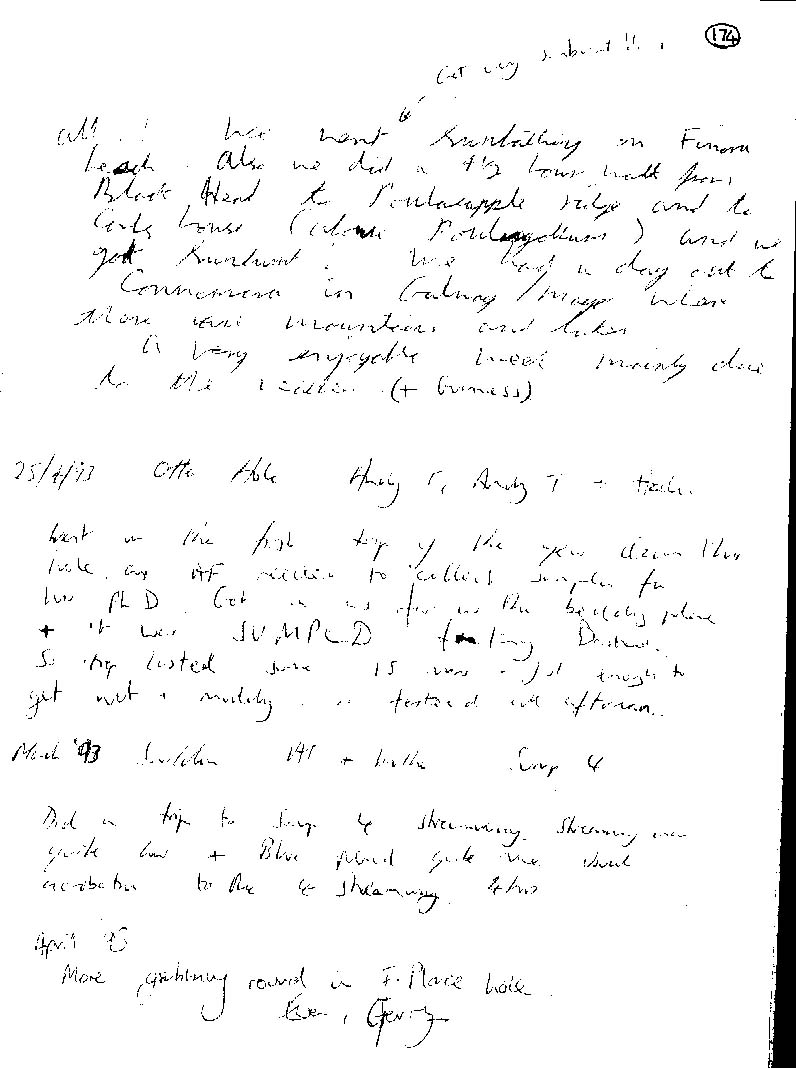 174
Get very sunburnt !!!
all ! We went sunbathing on Finora
beach. Also we did a 4½ hour walk from
Black Head to Poulacapple ridge and to
Caty house (above Poulnagollum) and we
got sunburnt. We had a day out to
Connemara in Galway / Mayo where
there were mountains and lakes
A very enjoyable week mainly due
to the weather (+ Guiness)
25/4/93 Otter Hole Andy F, Andy T +
Went on the first trip of the year down this
hole, as AF needed to collect samples for
his PhD. Got in as far as the bedding plane
+ it was SUMPED
So trip lasted some 15 mins - just enough to
get wet + muddy all afternoon.
March '93 Swildon AT + Sump 4
Did a trip to Sump 4 streamway. Streamway was
quite low + Blue pencil quite the usual
acrobatics to the 4 streamway. 4hrs
April 93
More grabbing round in F. Place hole.